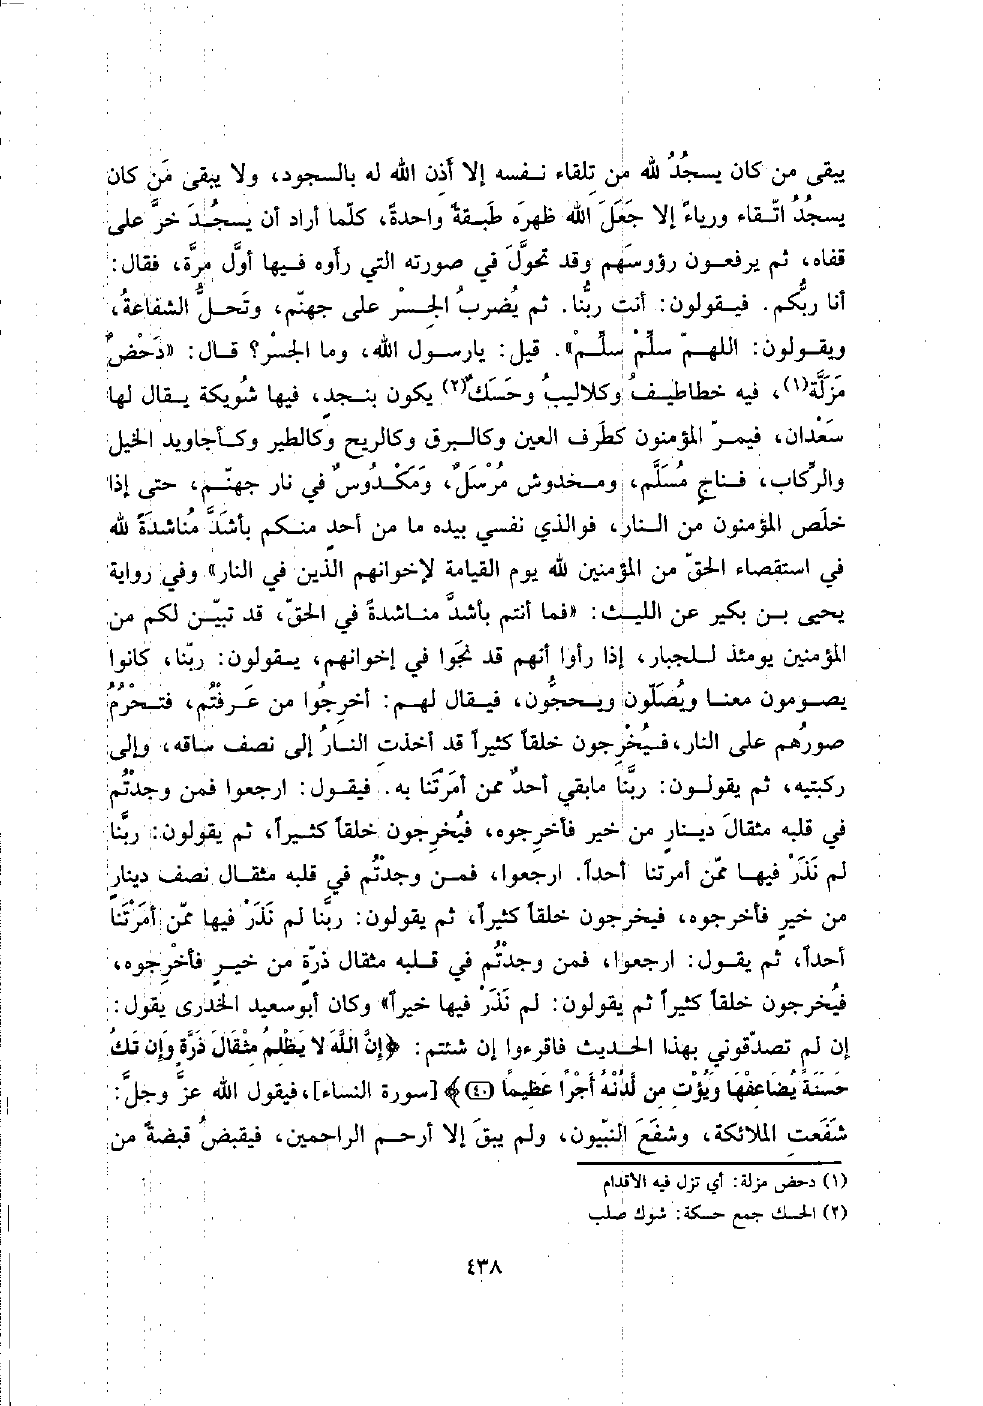 يبقى من كان يسجُدُ لله من تلقاء نفسه إلا أَذِن الله له بالسجود، ولا يبقى مَن كان
يسجُدُ اتّقاء ورياءً إلا جَعَلَ الله ظهرَه طَبقةً واحدةً، كلّما أراد أن يسجُدَ خرَّ على
قفاه، ثم يرفعون رؤوسَهم وقد تحوَّلَ في صورته التي رأوه فيها أوَّل مرَّة، فقال:
أنا ربُّكم. فيقولون: أنت ربُّنا. ثم يُضرب الجِسْر على جهنّم، وتَحلُّ الشفاعةُ،
ويقولون: اللهمّ سلِّمْ سلِّمْ». قيل: يارسول الله، وما الجسْر؟ قال: «دَحْضٌ
مَزَلَّة(١)، فيه خطاطيفُ وكلاليبُ وحَسَكٌ(٢) يكون بنجدٍ، فيها شُويكة يقال لها
سَعْدان، فيمرّ المؤمنون كطَرف العين وكالبرق وكالريح وكالطير وكأجاويد الخيل
والرِّكاب، فناجٍ مُسَلَّم، ومخدوش مُرْسَلٌ، ومَكْدُوسٌ في نار جهنّم، حتى إذا
خلَص المؤمنون من النار، فوالذي نفسي بيده ما من أحدٍ منكم بأشَدَّ مُناشدَةً لله
في استقصاء الحقّ من المؤمنين لله يوم القيامة لإخوانهم الّذين في النار» وفي رواية
يحيى بن بكير عن الليث: «فما أنتم بأشدَّ مناشدةً في الحقّ، قد تبيّن لكم من
المؤمنين يومئذ للجبار، إذا رأوا أنهم قد نجَوا في إخوانهم، يقولون: ربّنا، كانوا
يصومون معنا ويُصَلّون ويحجُّون، فيقال لهم: أخرِجُوا من عَرفْتُم، فتُحْرَمُ
صورُهم على النار، فيُخْرِجون خلقاً كثيراً قد أخذت النارُ إلى نصف ساقه، وإلى
ركبتيه، ثم يقولون: ربَّنا مابقي أحدٌ ممن أمَرْتَنا به. فيقول: ارجعوا فمن وجدْتُم
في قلبه مثقالَ دينارٍ من خير فأخرِجوه، فيُخرِجون خلقاً كثيراً، ثم يقولون: ربَّنا
لم نَذَرْ فيها ممّن أمرتنا أحداً. ارجعوا، فمن وجدْتُم في قلبه مثقال نصف دينارٍ
من خيرٍ فأخرجوه، فيخرجون خلقاً كثيراً، ثم يقولون: ربَّنا لم نَذَرْ فيها ممّن أمَرْتَنا
أحداً، ثم يقول: ارجعوا، فمن وجدْتُم في قلبه مثقال ذرّة من خيرٍ فأخْرِجوه،
فيُخرجون خلقاً كثيراً ثم يقولون: لم نَذَرْ فيها خيراً» وكان أبوسعيد الخدرى يقول:
إن لم تصدّقوني بهذا الحديث فاقرءوا إن شئتم: ﴿إِنَّ اللَّهَ لَا يَظْلِمُ مِثْقَالَ ذَرَّةٍ وَإِن تَكُ
حَسَنَةً يُضَاعِفْهَا وَيُؤْتِ مِن لَّدُنْهُ أَجْرًا عَظِيمًا ﴿٤٠﴾﴾ [سورة النساء]، فيقول الله عزَّ وجلَّ:
شَفَعت الملائكة، وشفَعَ النّبيّون، ولم يبقَ إلا أرحم الراحمين، فيقبضُ قبضةً من
(١) دحض مزلة: أي تزل فيه الأقدام
(٢) الحسك جمع حسكة: شوك صلب
٤٣٨